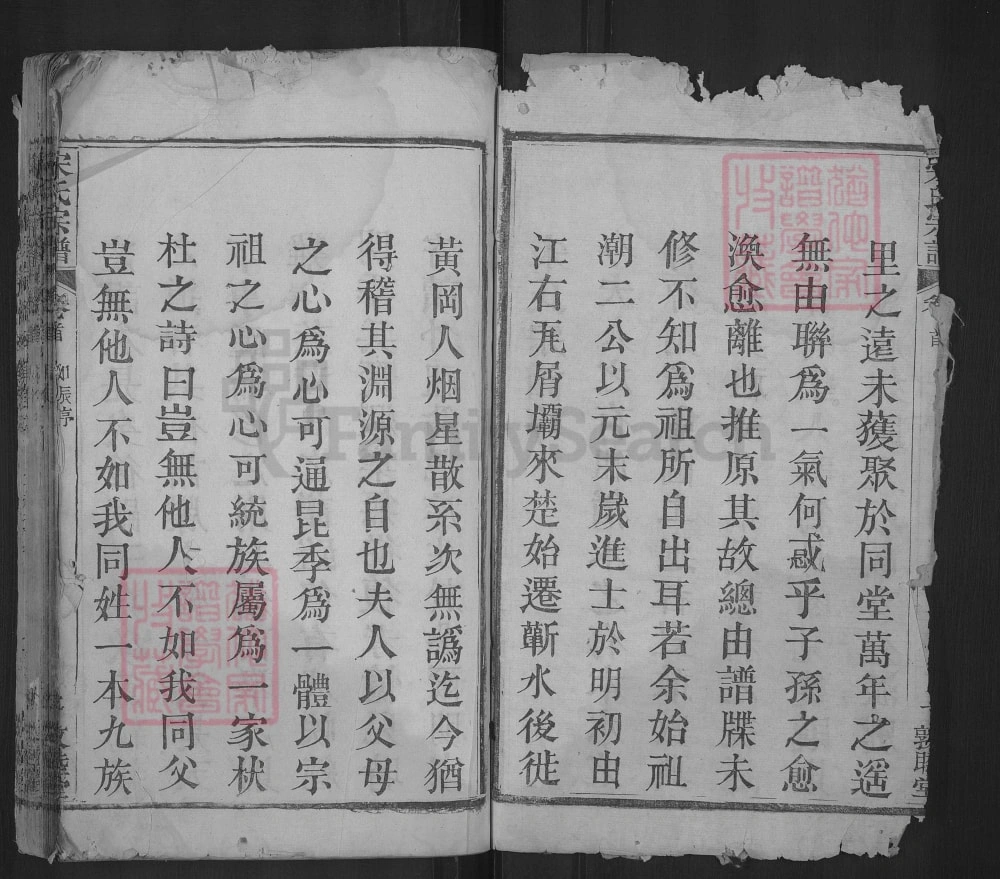 里之遠未獲聚於同堂萬年之遥
無由聯爲一氣何惑乎子孫之愈
渙愈離也推原其故總由譜牒未
修不知爲祖所自出耳若余始祖
潮二公以元末歲進士於明初由
江右瓦屑壩來楚始遷蘄水後徙
黃岡人烟星散系次無譌迄今猶
得稽其淵源之自也夫人以父母
之心爲心可通昆季爲一體以宗
祖之心爲心可統族屬爲一家杕
杜之詩曰豈無他人不如我同父
豈無他人不如我同姓一本九族
宋氏宗譜
首
FamilySearch